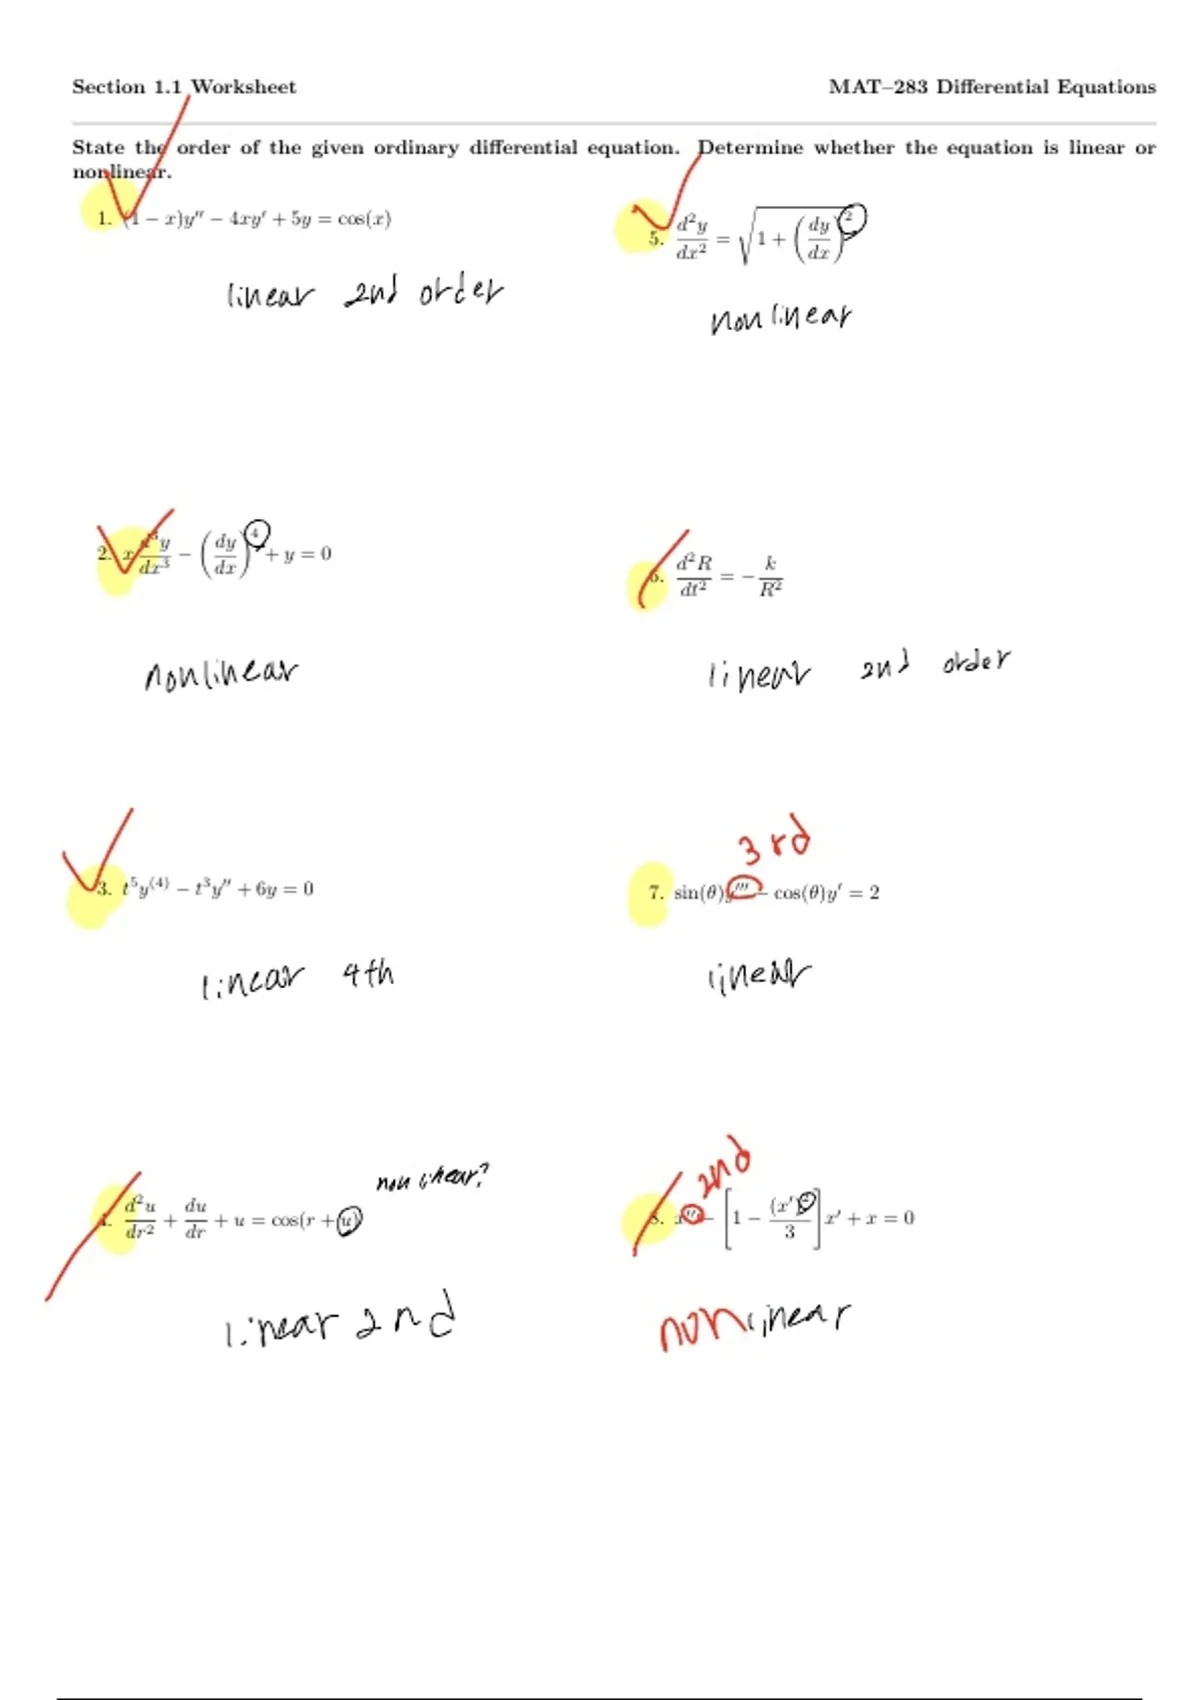 Section 1.1 Worksheet MAT–283 Differential Equations
State the order of the given ordinary differential equation. Determine whether the equation is linear or
nonlinear.
1. (1 − x)y″ − 4xy′ + 5y = cos(x)
linear 2nd order
2. x d³y/dx³ − (dy/dx)⁴ + y = 0
nonlinear
3. t⁵y⁽⁴⁾ − t³y″ + 6y = 0
linear 4th
4. d²u/dr² + du/dr + u = cos(r + u)
non linear?
linear 2nd
5. d²y/dx² = √(1 + (dy/dx)²)
nonlinear
6. d²R/dt² = − k/R²
linear 2nd order
3rd
7. sin(θ)y‴ − cos(θ)y′ = 2
linear
2nd
8. x″ − [1 − (x′)²/3] x′ + x = 0
nonlinear